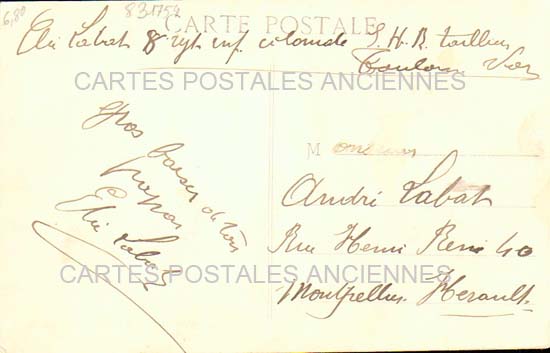 6,80
831754
CARTE POSTALE
Elie Labat 8e rgt inf coloniale S.H.R. tailleur
Toulon Var
CARTES POSTALES ANCIENNES
Gros baisers de ton
papa
Elie Labat
Monsieur
André Labat
Rue Henri René 40
CARTES POSTALES ANCIENNES
Montpellier Herault